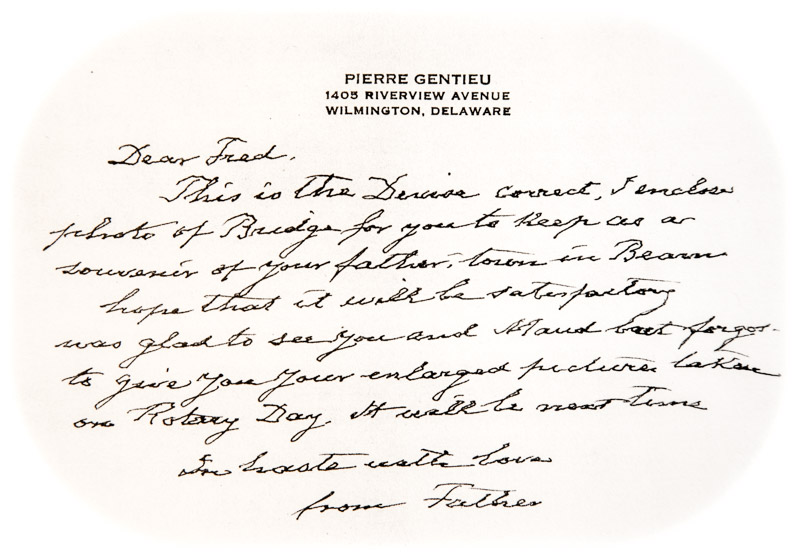 PIERRE GENTIEU
1405 RIVERVIEW AVENUE
WILMINGTON, DELAWARE
Dear Fred.
This is the Devise correct, I enclose
photo of Bridge for you to keep as a
souvenir of your father, town in Bearn
hope that it will be satisfactory
was glad to see you and Maud but forgot
to give you your enlarged picture taken
on Rotary Day. It will be next time
In haste with love
from Father